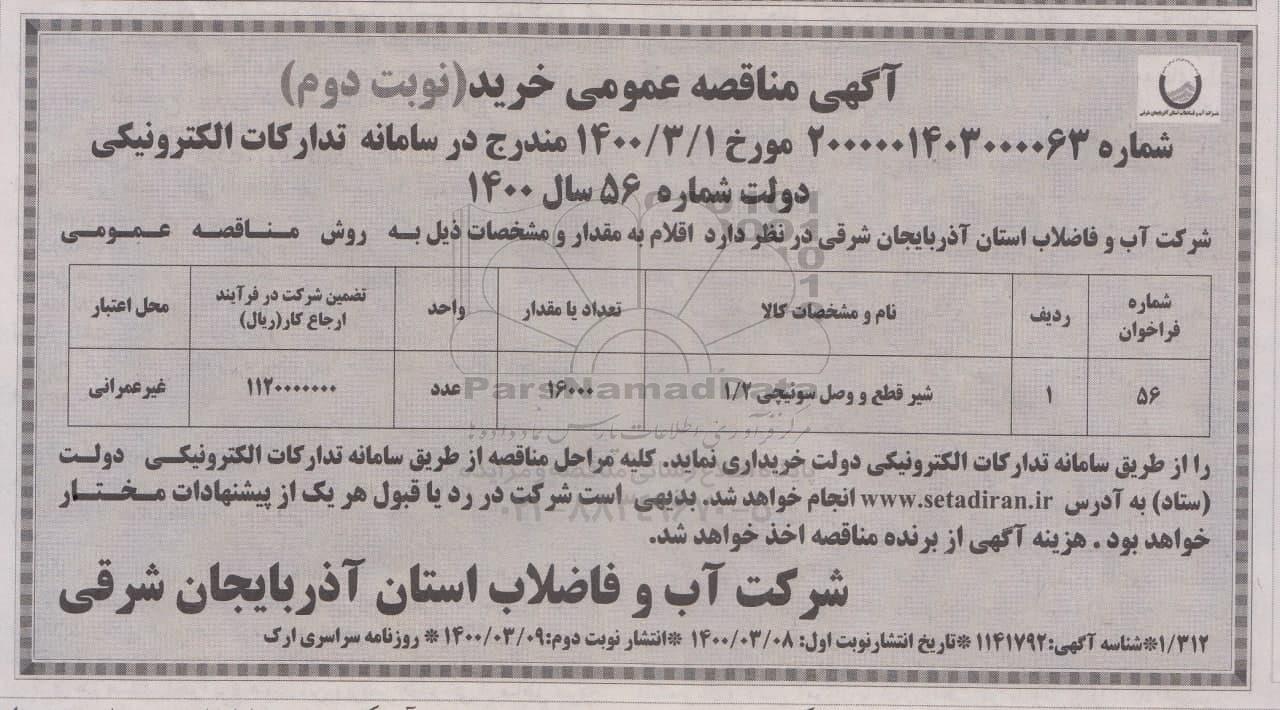 آگهی مناقصه عمومی خرید(نوبت دوم)
شماره ۲۰۰۰۰۰۱۴۰۳۰۰۰۰۶۳ مورخ ۱۴۰۰/۳/۱ مندرج در سامانه تدارکات الکترونیکی
دولت شماره ۵۶ سال ۱۴۰۰
شرکت آب و فاضلاب استان آذربایجان شرقی در نظر دارد اقلام به مقدار و مشخصات ذیل به روش مناقصه عمومی
شماره فراخوان ردیف نام و مشخصات کالا تعداد یا مقدار واحد تضمین شرکت در فرآیند ارجاع کار(ریال) محل اعتبار
۵۶ ۱ شیر قطع و وصل سوئیچی ۱/۲ ۱۶۰۰۰ عدد ۱۱۲۰۰۰۰۰۰۰ غیرعمرانی
ParsNamadData
مرکز فرآوری اطلاعات پارس نماد داده ها
را از طریق سامانه تدارکات الکترونیکی دولت خریداری نماید. کلیه مراحل مناقصه از طریق سامانه تدارکات الکترونیکی دولت
(ستاد) به آدرس www.setadiran.ir انجام خواهد شد. بدیهی است شرکت در رد یا قبول هر یک از پیشنهادات مختار
خواهد بود . هزینه آگهی از برنده مناقصه اخذ خواهد شد.
شرکت آب و فاضلاب استان آذربایجان شرقی
۱/۳۱۲*شناسه آگهی:۱۱۴۱۷۹۲ *تاریخ انتشارنوبت اول: ۱۴۰۰/۰۳/۰۸ *انتشار نوبت دوم:۱۴۰۰/۰۳/۰۹ * روزنامه سراسری ارک